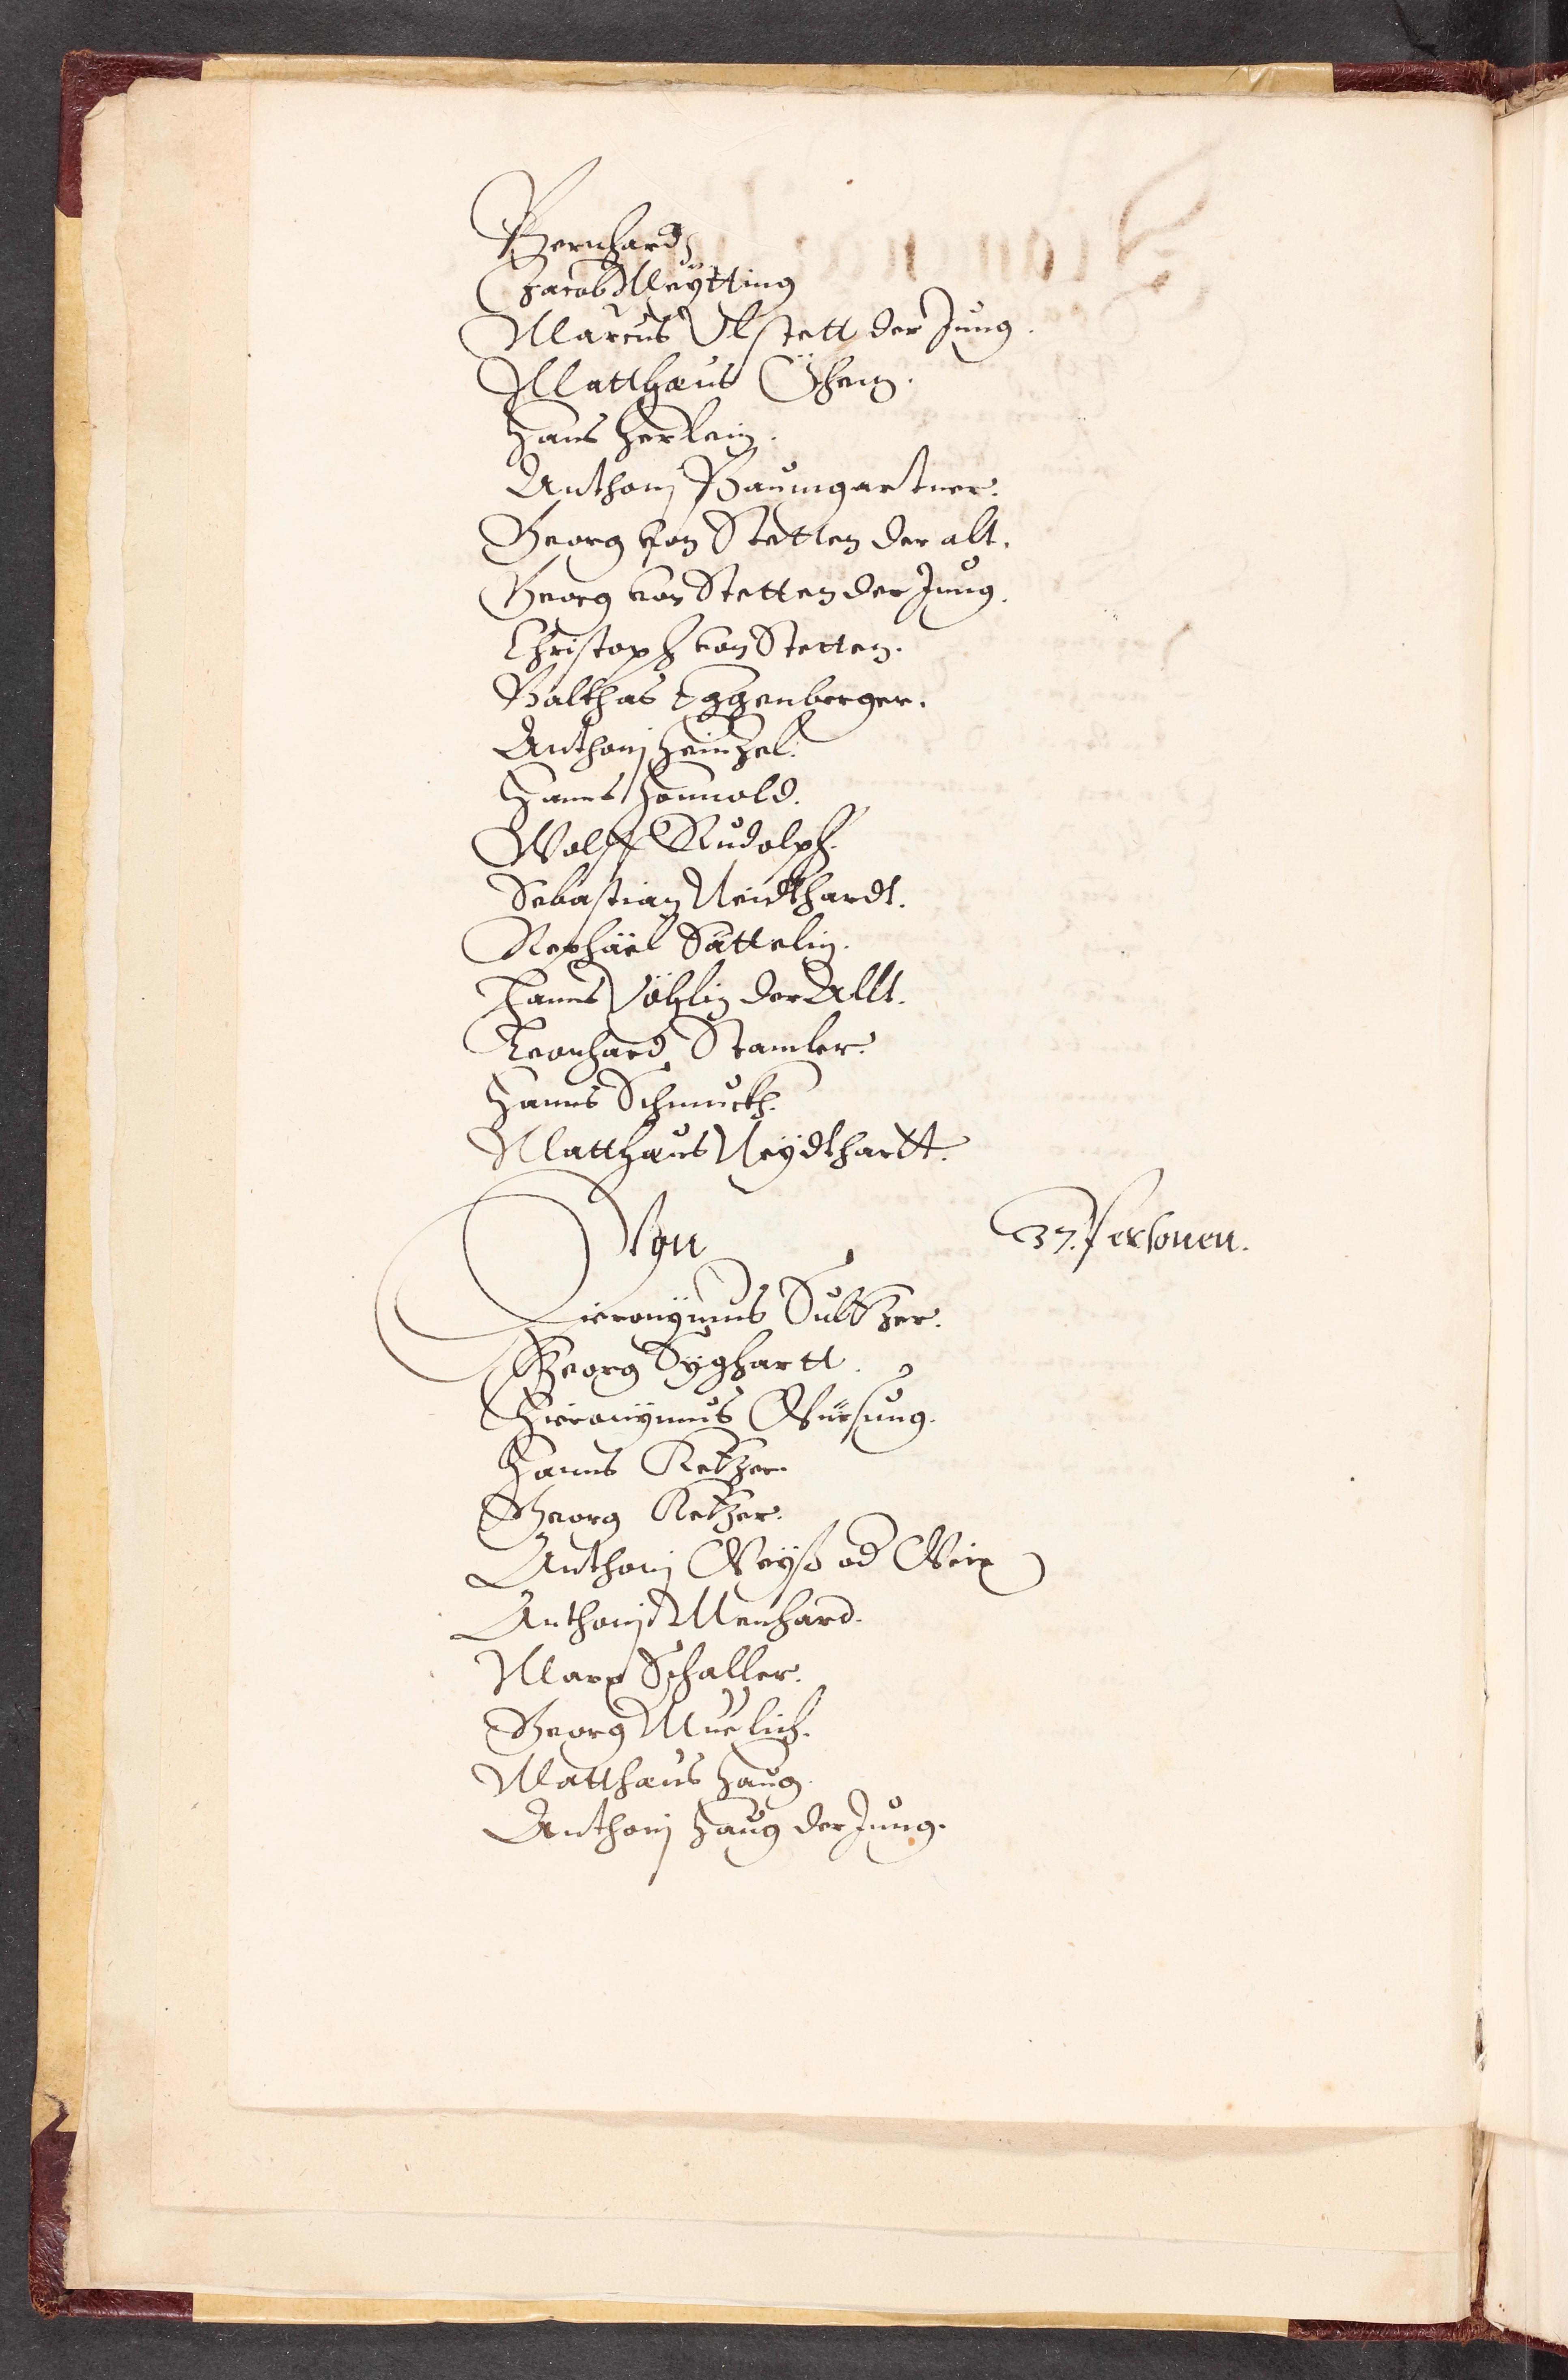 Bernhard
Jacob Meÿtting
Marcus Vlstett der Jung.
Matthæus Öhem.
Hans Herlein.
Anthonj Baumgartner.
Georg von Stetten der alt.
Georg von Stetten der Jung.
Christoph von Stetten.
Balthas Eggenberger.
Anthonj Heinzel.
Hanns Honnold.
Wolff Rudolph.
Sebastian Neidthardt.
Raphäel Sättelin.
Hanns Vöhlin der Allt.
Leonhard Stamler.
Hanns Schmuckh.
Matthæus Neÿdthartt.
Von 37. Personen.
Hieronÿmus Sultzer.
Georg Sÿghartt.
Hieronÿmus Würsung.
Hanns Ketzer.
Georg Ketzer.
Anthonj Weÿß od Weix
Anthonj Menhard.
Marx Schaller.
Georg Muelich.
Matthæus Haug.
Anthonj Haug der Jung.